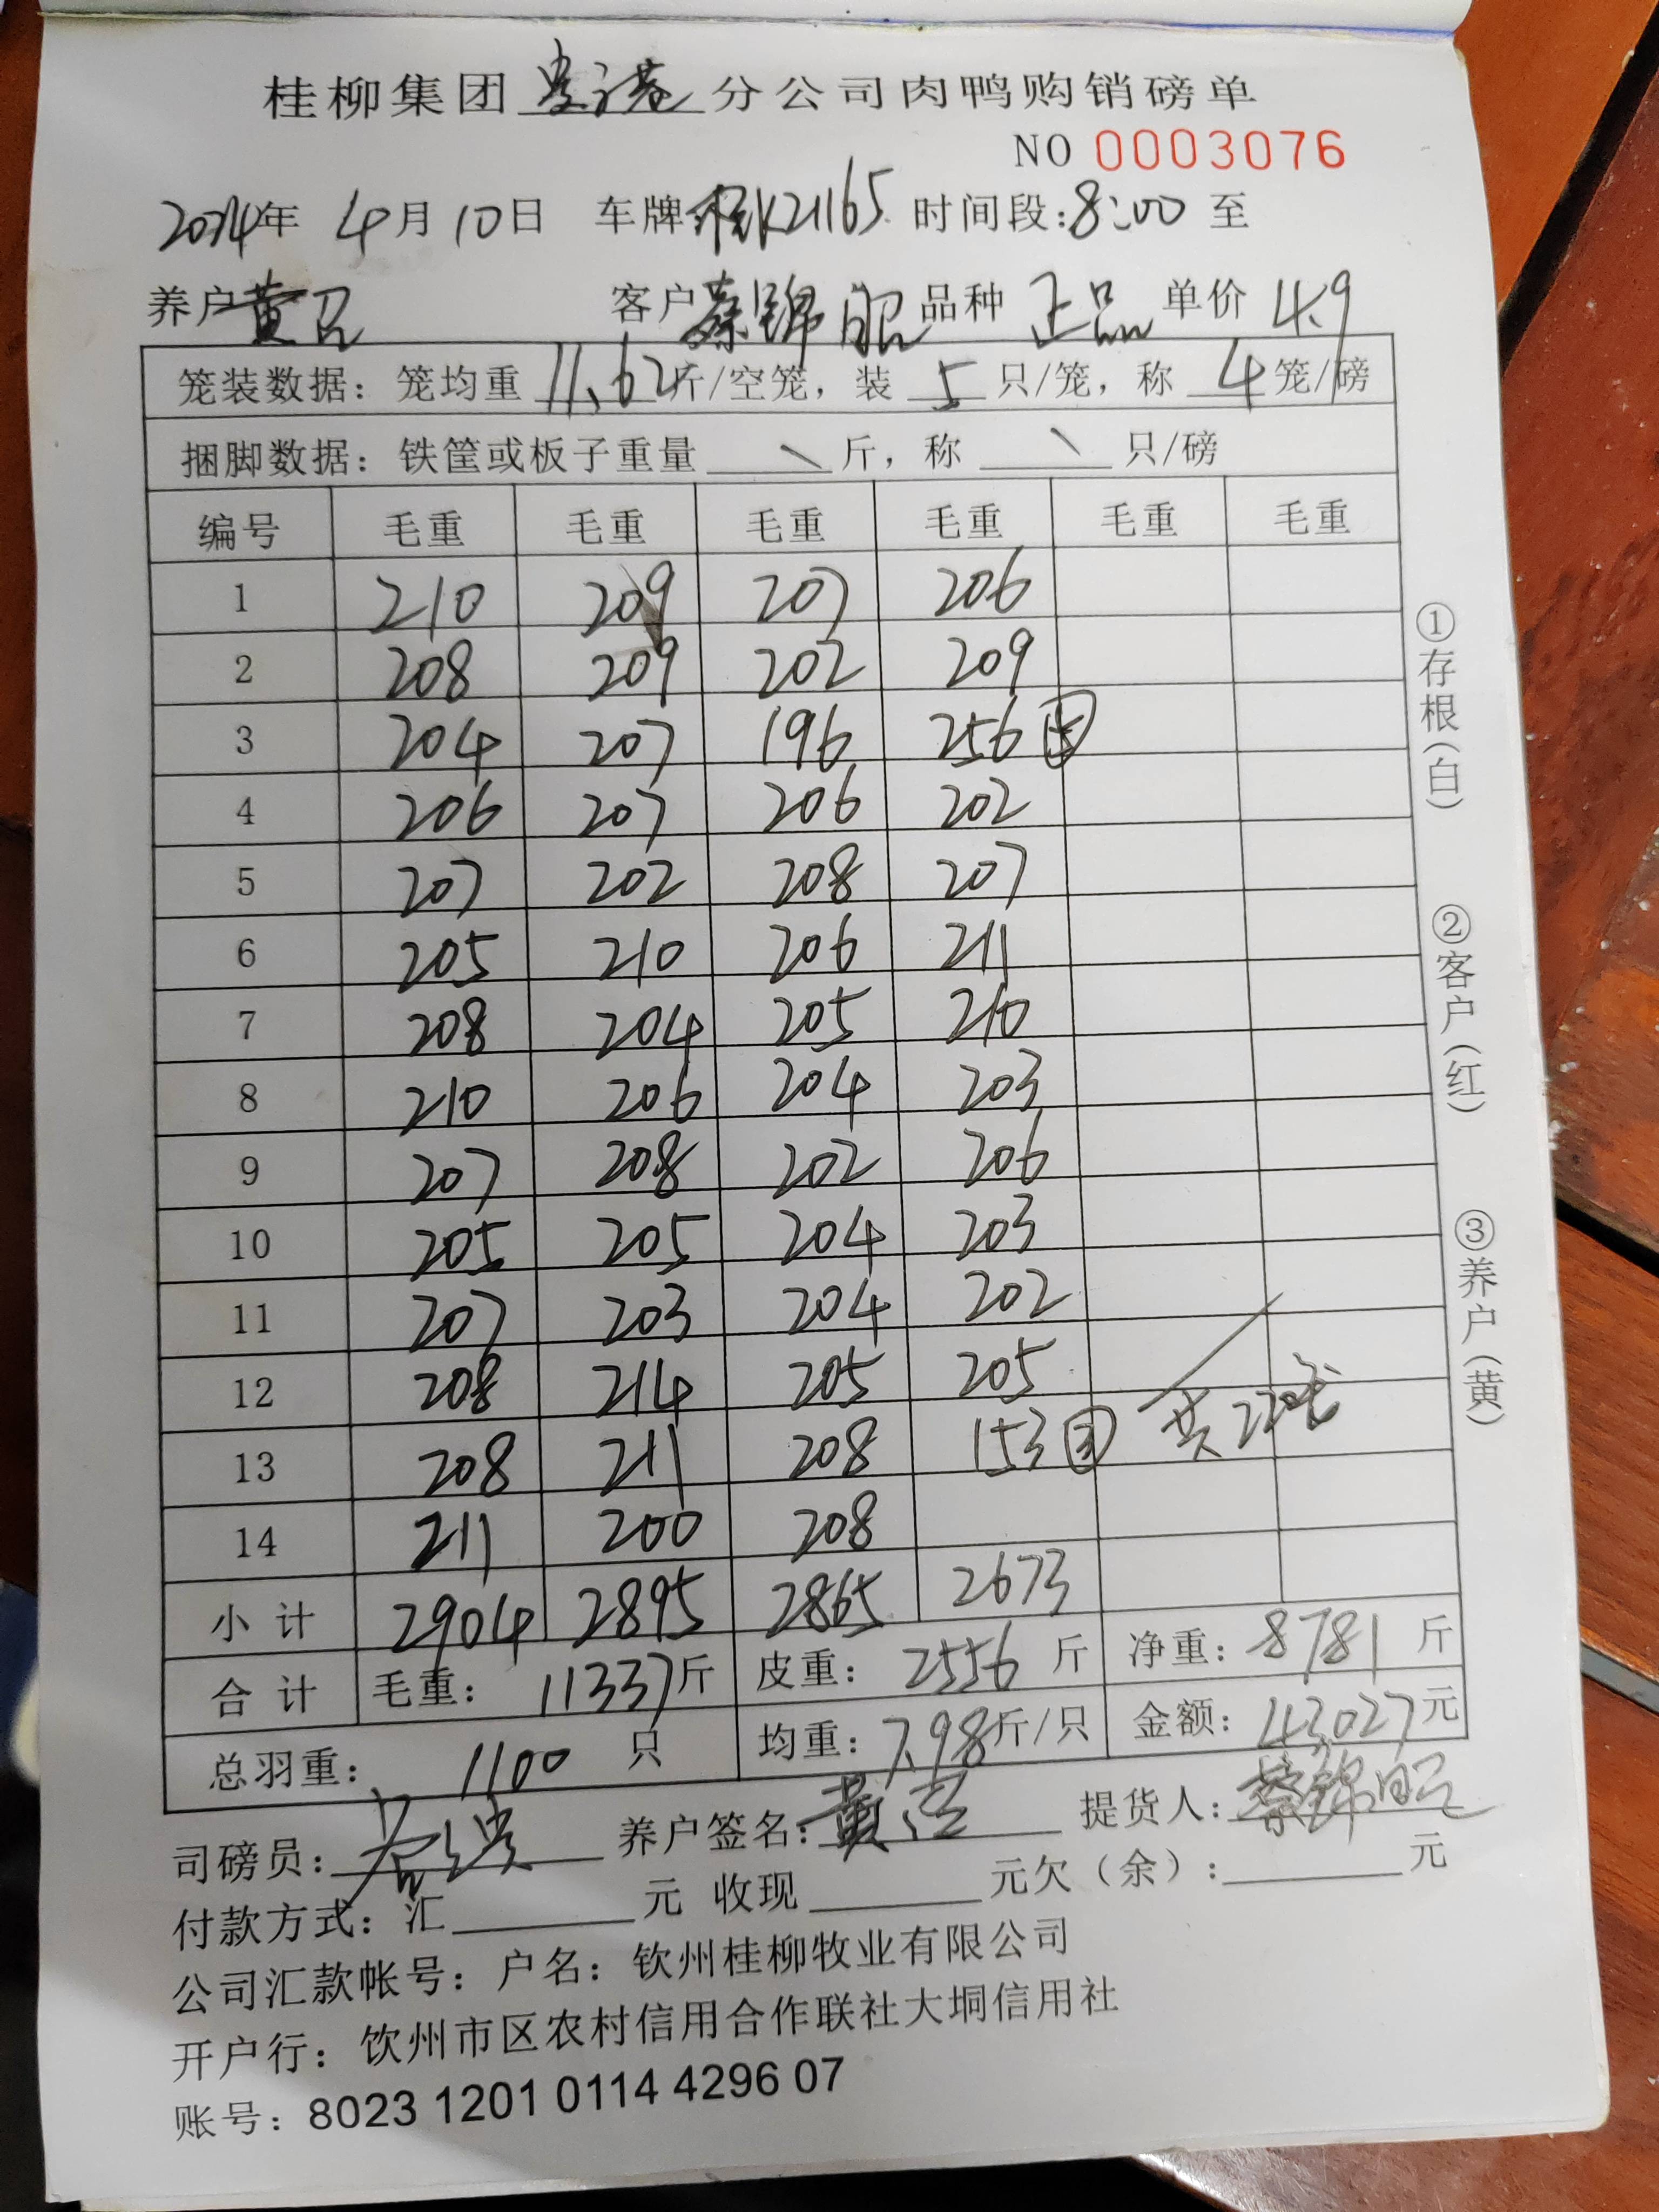 桂柳集团贵港分公司肉鸭购销磅单
NO 0003076
2024年 4月10日 车牌桂K21165 时间段:8:00 至
养户黄 客户蔡锦昭 品种 正品 单价 4.9
笼装数据：笼均重 11.62斤/空笼，装 5 只/笼，称 4笼/磅
捆脚数据：铁筐或板子重量 \ 斤，称 \ 只/磅
编号 毛重 毛重 毛重 毛重 毛重 毛重
1 210 209 207 206
2 208 209 202 209
3 204 207 196 256⑤
4 206 207 206 202
5 207 202 208 207
6 205 210 206 211
7 208 204 205 210
8 210 206 204 203
9 207 208 202 206
10 205 205 204 203
11 207 203 204 202
12 208 214 205 205
13 208 211 208 153③ 共220笼
14 211 200 208
小计 2904 2895 2865 2673
合计 毛重：11337斤 皮重：2556斤 净重：8781斤
总羽重：1100 只 均重：7.98斤/只 金额：43027元
司磅员： 养户签名：黄 提货人：蔡锦昭
付款方式：汇 元 收现 元欠（余）： 元
公司汇款帐号：户名：钦州桂柳牧业有限公司
开户行：钦州市区农村信用合作联社大垌信用社
账号：8023 1201 0114 4296 07
①存根（白）
②客户（红）
③养户（黄）